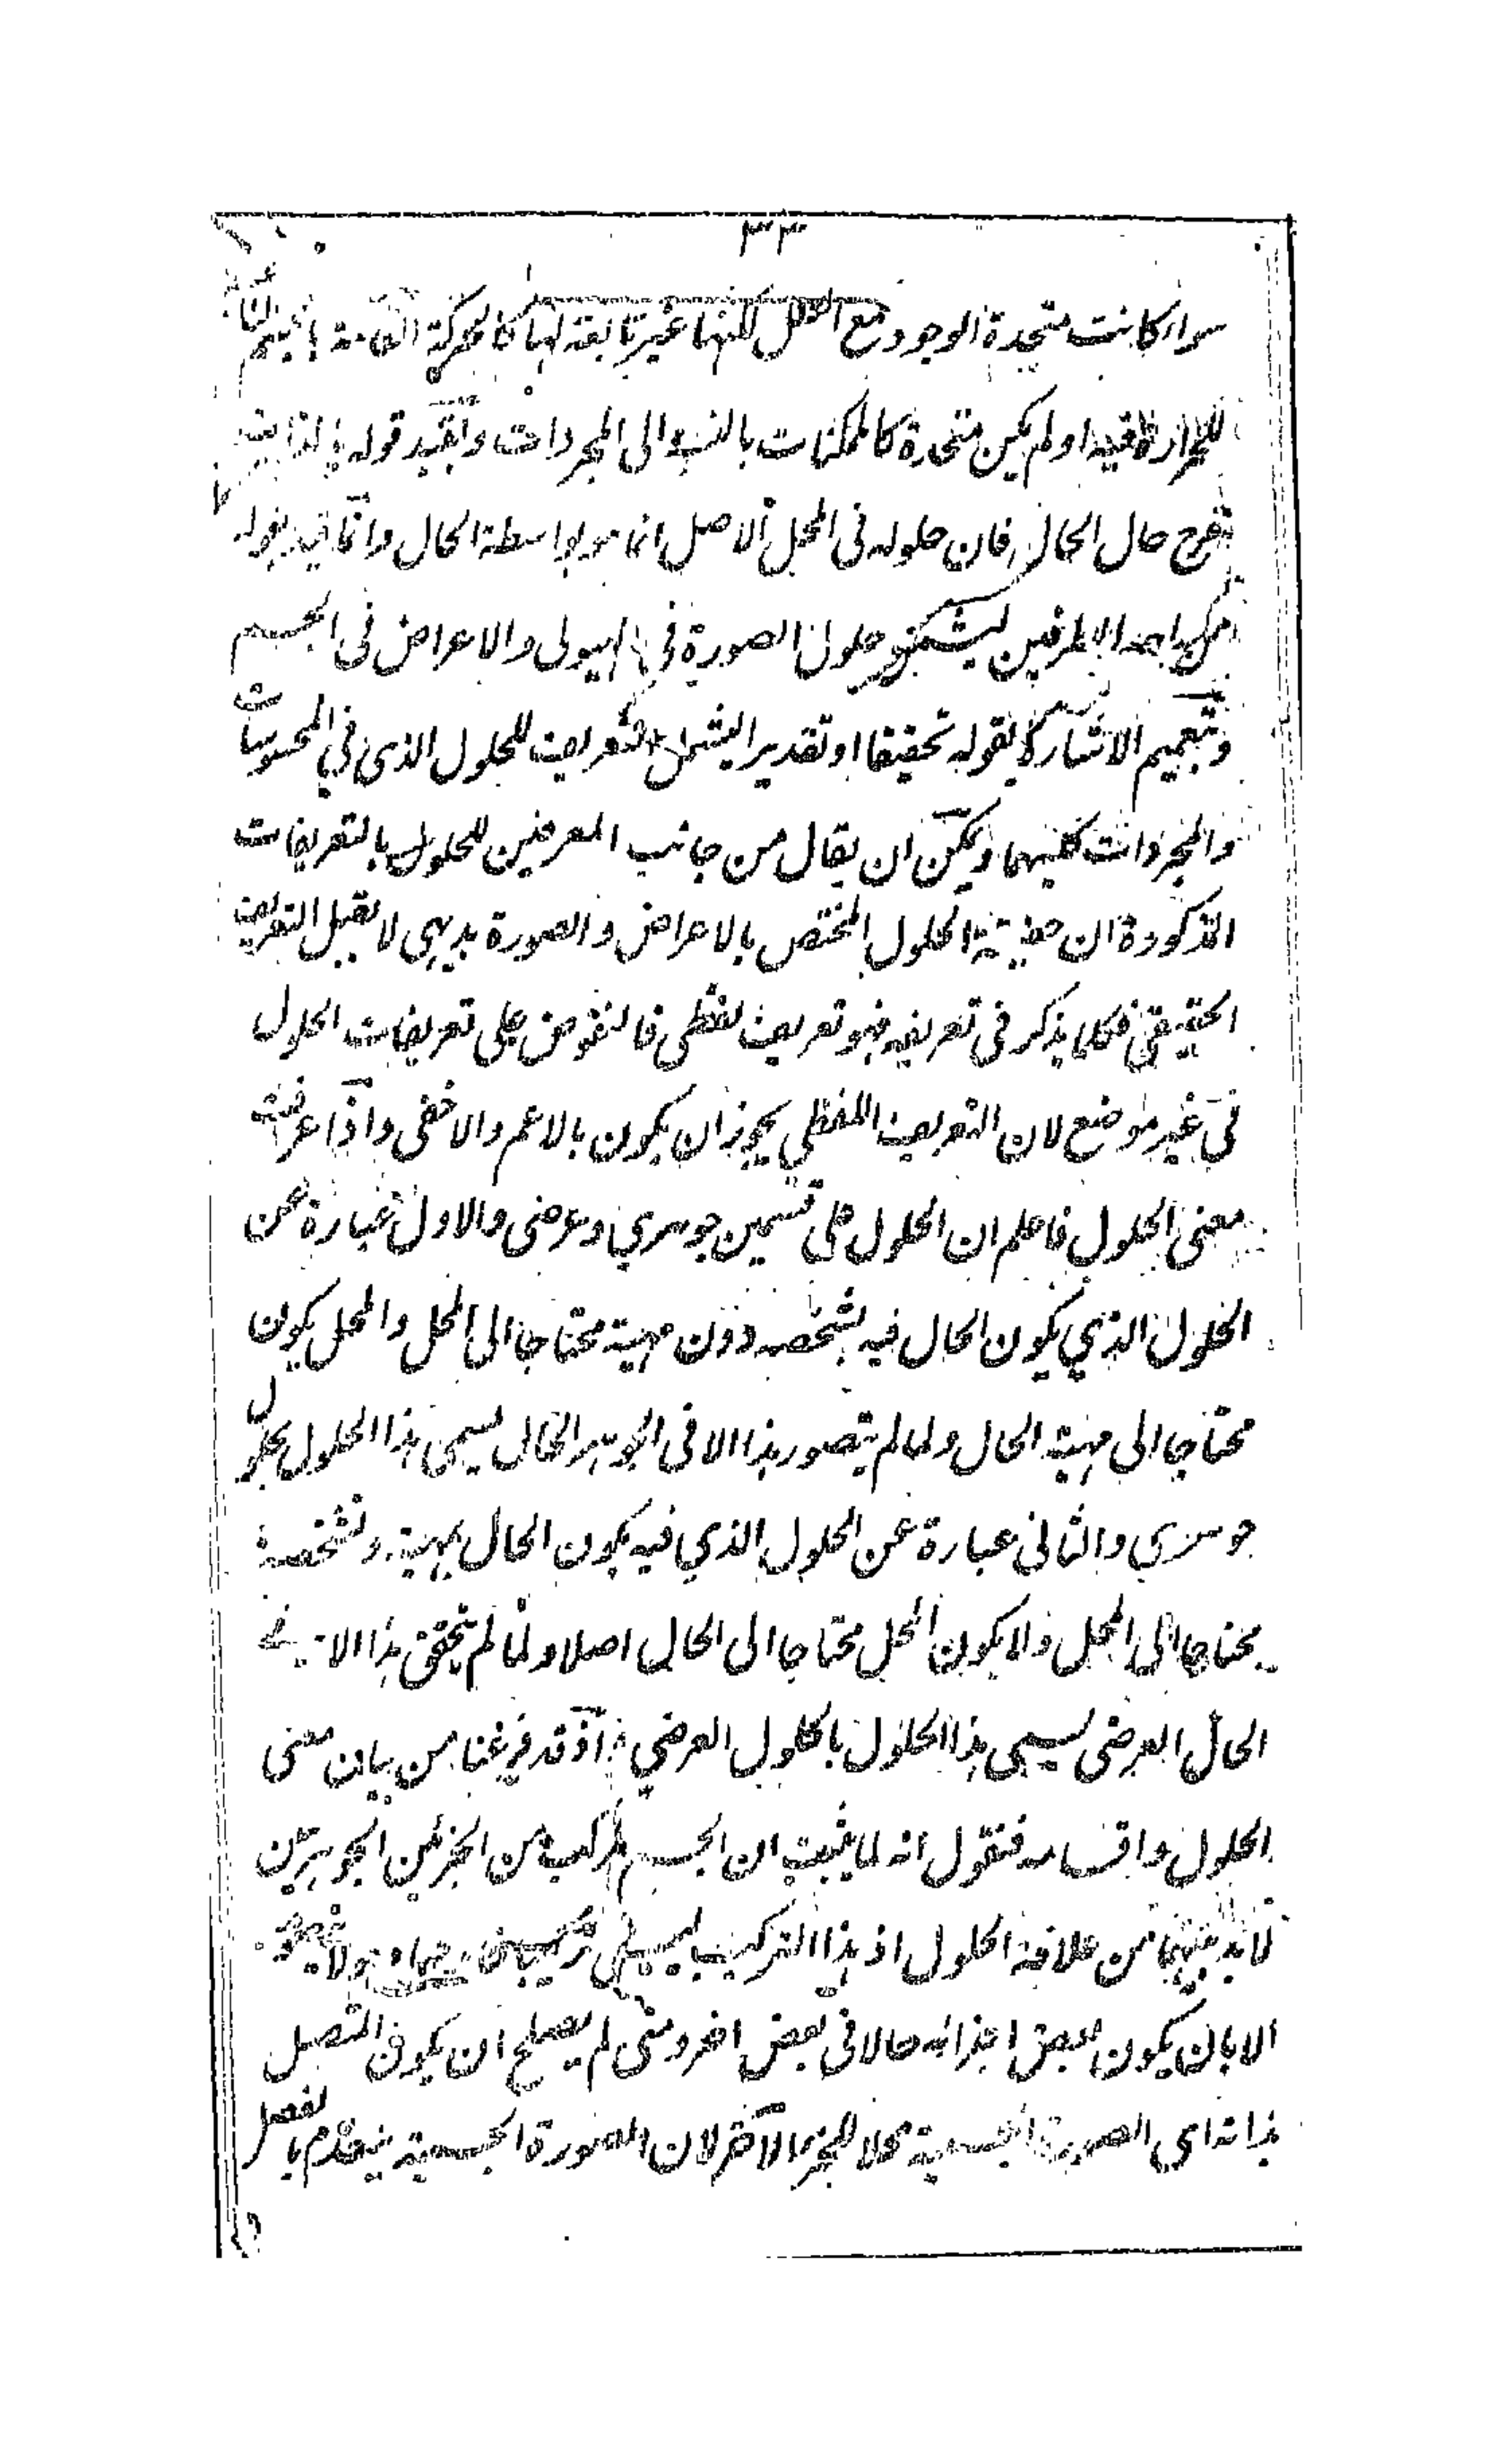 ٣٣
سواء كانت متحدة الوجود مع المحل لكنها غير تابعة لها كالحركة القائمة
للحرارة فيه او لم يكن متحدة كالممكنات بالنسبة الى المجردات وبقيد قوله بالذات
خرج حال الحال فان حلوله في المحل الاصل انما هو بواسطة الحال وانما قيد بقوله
الطرفين ليشتمل حلول الصورة في الهيولى والاعراض في الجسم
وتعميم الاشارة بقوله تحقيقا او تقديرا ليشمل التعريف للحلول الذي في المحسوسات
والمجردات كليهما ويمكن ان يقال من جانب المعرفين للحلول بالتعريفات
المذكورة ان حقيقة الحلول المختص بالاعراض والصورة بديهي لا يقبل التعريف
الحقيقي فكلما يذكر في تعريفه فهو تعريف لفظي فالنقوض على تعريفات الحلول
في غير موضع لان التعريف اللفظي يجوز ان يكون بالاعم والاخفى واذا عرفت
معنى الحلول فاعلم ان الحلول على قسمين جوهري وعرضي والاول عبارة عن
الحلول الذي يكون الحال فيه بشخصه دون مهية محتاجا الى المحل والمحل يكون
محتاجا الى مهية الحال ولما لم يتصور هذا الا في الجوهر الحال يسمى هذا الحلول بحلول
جوهري والثاني عبارة عن الحلول الذي فيه يكون الحال بمهية وتشخصه
محتاجا الى المحل ولا يكون المحل محتاجا الى الحال اصلا ولما لم يتحقق هذا الا في
الحال العرضي يسمى هذا الحلول بالحلول العرضي واذ قد فرغنا من بيان معنى
الحلول واقسامه فنقول انه لما يثبت ان الجسم مركب من الجزئين الجوهريين
لا بد بينهما من علاقة الحلول اذ هذا التركيب ليس الى تركيبا ولا يتصور
الا بان يكون لبعض اجزائه حالا في بعض اخر ومتى لم يصلح ان يكون المتصل
بذاته اي الصورة الجسمية محلا للجزء الآخر لان الصورة الجسمية ينعدم بالفصل